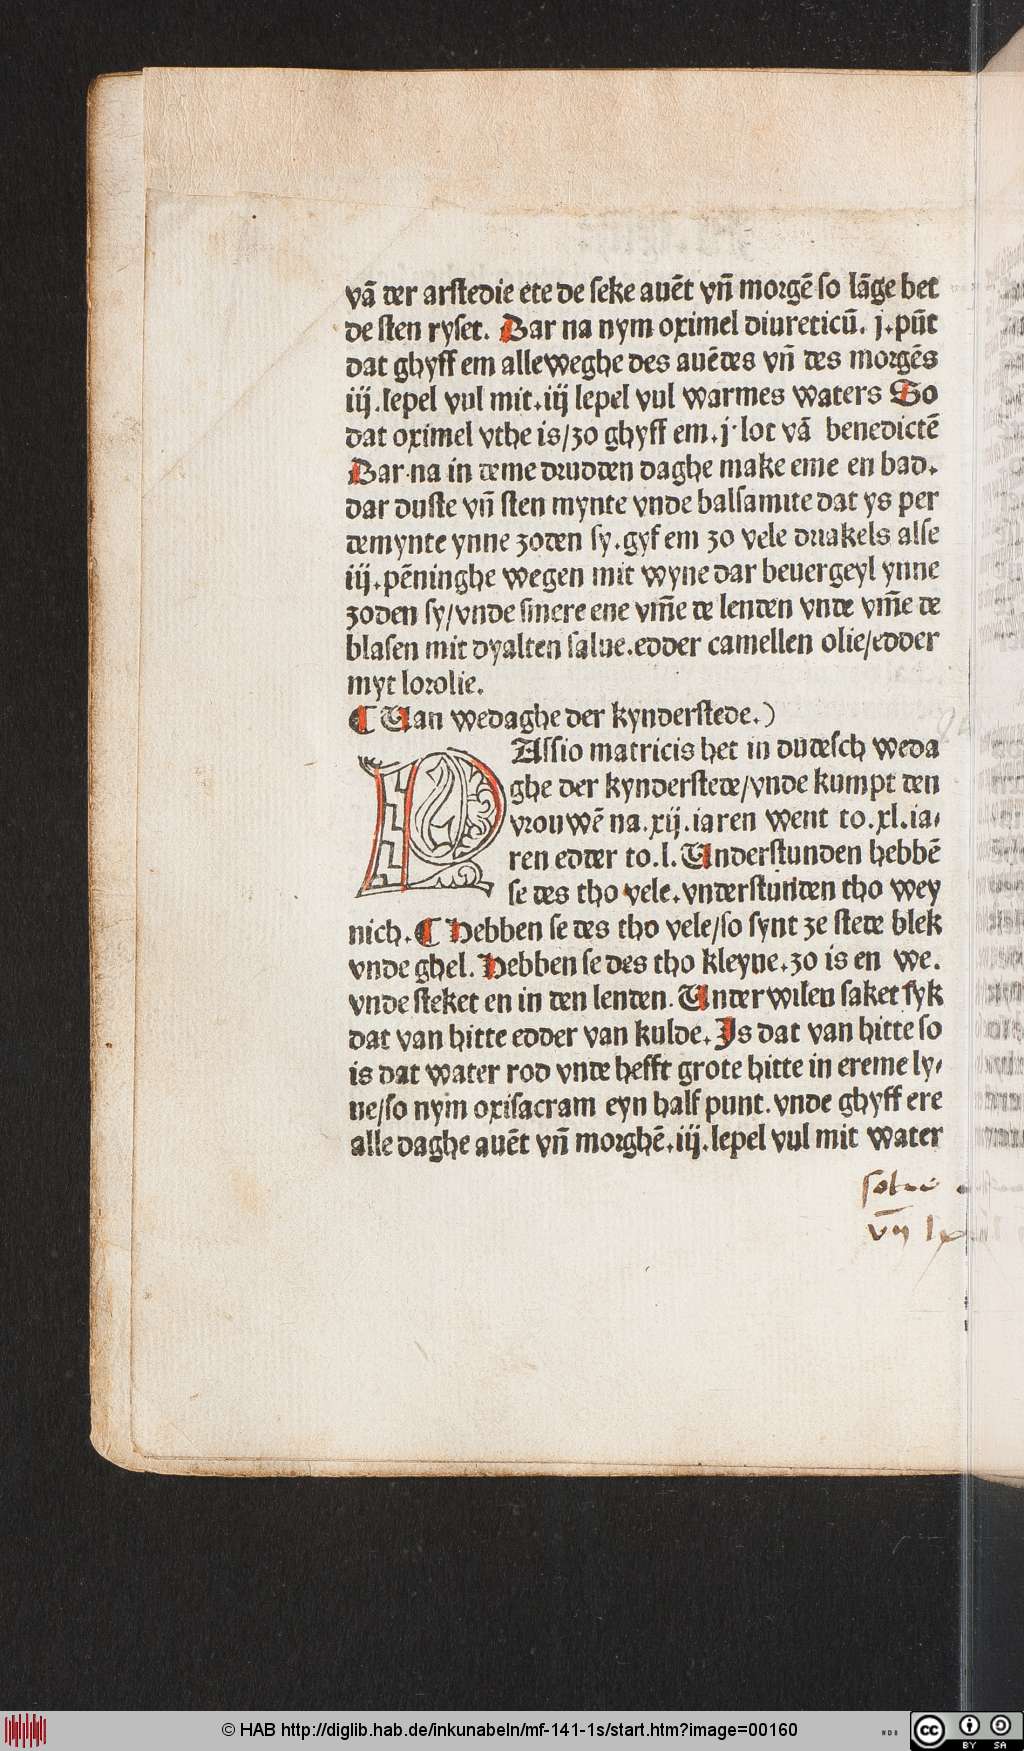 vā der arstedie ete de seke auēt vñ morgē so lāge bet
de sten ryset. Dar na nym oximel diureticū. j. pūt
dat ghyff em alleweghe des auēdes vñ des morgēs
iij. lepel vul mit. iij lepel vul warmes waters So
dat oximel vthe is/zo ghyff em. j. lot vā benedictē
Dar na in deme drudden daghe make eme en bad.
dar duste vñ sten mynte vnde balsamite dat ys per
demynte ynne zoden sy. gyf em zo vele driakels alse
iij. pēninghe wegen mit wyne dar beuergeyl ynne
zoden sy/vnde smere ene vm̄e de lenden vnde vm̄e de
blasen mit dyalten salue. edder camellen olie/edder
myt lorolie.
¶ Uan wedaghe der kynderstede.)
PAssio matricis het in dudesch weda
ghe der kynderstede/vnde kumpt den
vrouwē na. xij. iaren went to. xl. ia-
ren edder to. l. Understunden hebbē
se des tho vele. vnderstunden tho wey
nich. ¶ Hebben se des tho vele/so synt ze stede blek
vnde ghel. Hebben se des tho kleyne. zo is en we.
vnde steket en in den lenden. Underwilen saket syk
dat van hitte edder van kulde. Is dat van hitte so
is dat water rod vnde hefft grote hitte in ereme ly-
ue/so nym oxisacram eyn half punt. vnde ghyff ere
alle daghe auēt vñ morghē. iij. lepel vul mit water
© HAB http://diglib.hab.de/inkunabeln/mf-141-1s/start.htm?image=00160
WDB
cc
BY SA